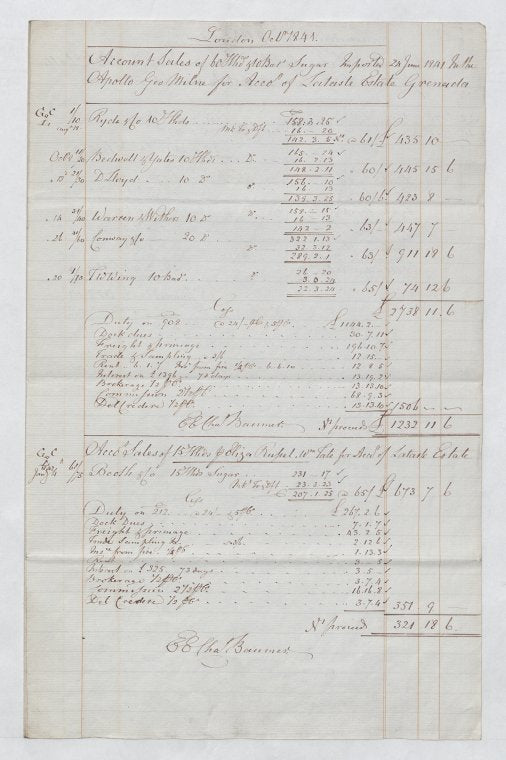 London Octr 1841.
Account Sales of 60 Hhds & 10 Bar. Sugar Imported 24 June 1841 In the
Apollo Geo Milne for Accot of Lataste Estate Grenada
Ryde & Co 10 Hhds 158.3.25
16. - 20
142.3.5 @ 61/ £ 435 10 -
Octr Bedwell & Yates 10 Hhds Do 165. 24
16.2.13
148.2.11 60/ 445 15 6
D Lloyd 10 Do 156. 10
16. 13
139.3.25 60/6 423 8 -
14 Warren & 10 Do Do 158. - 15
16 - 13
142 - 2 63/ 447 7 -
26 Conway & Co 20 Do 322.1.13
32.3.12
289.2.1 63/ 911 18 6
20 10 Bar. 26 - 20
3.0.24
22.3.24 65/ 74 12 6
£ 2738 11 6
Duty on 902 @ 24/ £ 1144.2
Dock dues 30.7.11
Freight & primage 196.10.7
& Sampling 3/6 12 15
Rent 12.8.5
Interest on £1396 13.19.2
Brokerage ½ pCt 13.13.10
Commission 2½ pCt 68.9.3
Del Credere ½ pCt 13.13.10 1506 - -
Nt proceeds £ 1232 11 6
EE Chas
Accot Sales of 15 Hhds p Eliza for Accot of Lataste Estate
Booth & Co 15 Hhds Sugar 231 - 17
23.2.23
207.1.25 @ 65/ £ 673 7 6
Duty on 212 24/ £ 267.2.6
Dock Dues 7.1.7
Freight & primage 43.2.5
Sampling &c 3/6 2.12.6
Insce from fire 1.13.3
Rent
Interest on £325 73 days 3.5
Brokerage ½ pCt 3.7.4
Commission 2½ pCt 16.16.8
Del Credere ½ pCt 3.7.4 351 9 -
Nt proceeds 321 18 6
EE Chas